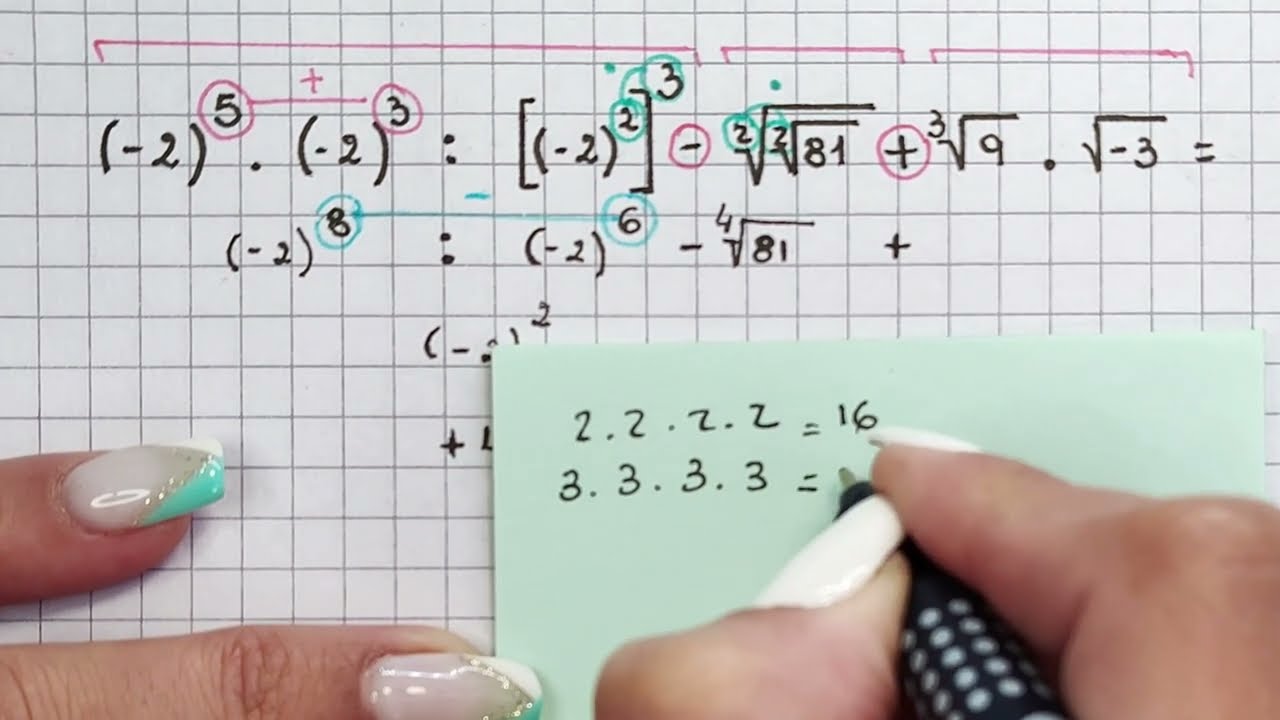 (-2)⁵ . (-2)³ : [(-2)²]³ - ²√²√81 + ³√9 . √-3 =
+
(-2)⁸ : (-2)⁶ - ⁴√81 +
-
(-2)²
+
2 . 2 . 2 . 2 = 16
3 . 3 . 3 . 3 =